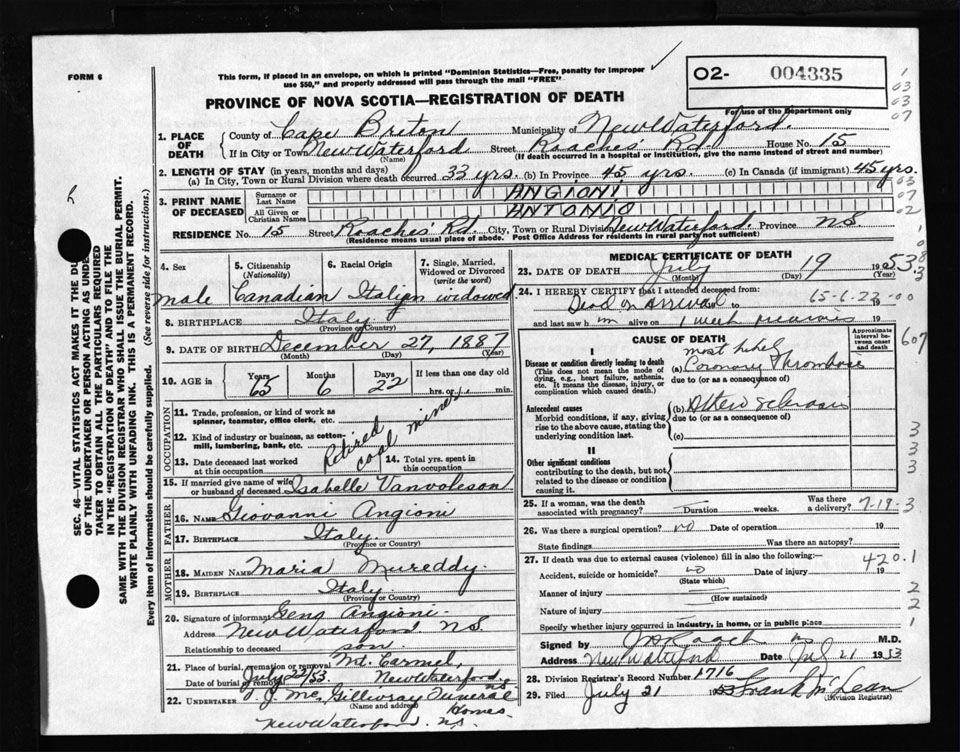 FORM 6
This form, if placed in an envelope, on which is printed "Dominion Statistics—Free, penalty for improper
use $50," and properly addressed will pass through the mail "FREE".
O2- 004335
For use of the Department only
PROVINCE OF NOVA SCOTIA—REGISTRATION OF DEATH
1. PLACE OF DEATH
County of Cape Breton Municipality of New Waterford.
If in City or Town New Waterford Street Roaches Rd. House No. 15
(Name) (If death occurred in a hospital or institution, give the name instead of street and number)
2. LENGTH OF STAY (in years, months and days)
(a) In City, Town or Rural Division where death occurred 33 yrs. (b) In Province 45 yrs. (c) In Canada (if immigrant) 45 yrs.
3. PRINT NAME OF DECEASED
Surname or Last Name ANGIONI
All Given or Christian Names ANTONIO
RESIDENCE No. 15 Street Roaches Rd. City, Town or Rural Division New Waterford. Province N.S.
(Residence means usual place of abode. Post Office Address for residents in rural parts not sufficient)
4. Sex
male
5. Citizenship
(Nationality)
Canadian
6. Racial Origin
Italian
7. Single, Married,
Widowed or Divorced
(write the word)
widowed
8. BIRTHPLACE Italy
(Province or Country)
9. DATE OF BIRTH December 27, 1887
(Month) (Day) (Year)
10. AGE in Years 65 Months 6 Days 22 If less than one day old
hrs. or min.
OCCUPATION
11. Trade, profession, or kind of work as
spinner, teamster, office clerk, etc.
12. Kind of industry or business, as cotton-
mill, lumbering, bank, etc.
Retired coal miner
13. Date deceased last worked
at this occupation
14. Total yrs. spent in
this occupation
15. If married give name of wife
or husband of deceased Isabelle
FATHER
16. NAME Giovanni Angioni
17. BIRTHPLACE Italy.
(Province or Country)
MOTHER
18. MAIDEN NAME Maria Mureddy.
19. BIRTHPLACE Italy.
(Province or Country)
20. Signature of informant Geno Angioni.
Address New Waterford N.S.
Relationship to deceased son.
21. Place of burial, cremation or removal Mt. Carmel,
Date of burial or removal July 22/53. New Waterford N.S.
22. UNDERTAKER T. J. Mc Gillivray Funeral Homes.
(Name and address)
New Waterford. N.S.
MEDICAL CERTIFICATE OF DEATH
23. DATE OF DEATH July 19 1953.
(Month) (Day)
24. I HEREBY CERTIFY that I attended deceased from:
Dead on Arrival to 65-6-22-00 19
and last saw h im alive on 1 week previous 19
CAUSE OF DEATH
Approximate interval between onset and death
I
Disease or condition directly leading to death
(This does not mean the mode of
dying, e.g., heart failure, asthenia,
etc. It means the disease, injury, or
complication which caused death.)
most likely
(a) Coronary Thrombosis
due to (or as a consequence of)
Antecedent causes
Morbid conditions, if any, giving
rise to the above cause, stating the
underlying condition last.
(b)
due to (or as a consequence of)
(c)
II
Other significant conditions
contributing to the death, but not
related to the disease or condition
causing it.
25. If a woman, was the death
associated with pregnancy? — Duration weeks. Was there a delivery? 7-19-3
26. Was there a surgical operation? no Date of operation 19
State findings Was there an autopsy?
27. If death was due to external causes (violence) fill in also the following:—
Accident, suicide or homicide? no Date of injury 19
(State which)
420.1
Manner of injury
(How sustained)
Nature of injury
Specify whether injury occurred in industry, in home, or in public place
Signed by M.D.
Address New Waterford Date Jul 21 1953
28. Division Registrar's Record Number 1716
29. Filed July 21 1953 Frank McLean
(Division Registrar)
1
03
03
07
03
07
02
607
3
3
3
1
2
2
1
SEC. 46—VITAL STATISTICS ACT MAKES IT THE DUTY
OF THE UNDERTAKER OR PERSON ACTING AS UNDER-
TAKER TO OBTAIN ALL THE PARTICULARS REQUIRED
IN THE "REGISTRATION OF DEATH" AND TO FILE THE
SAME WITH THE DIVISION REGISTRAR WHO SHALL ISSUE THE BURIAL PERMIT.
WRITE PLAINLY WITH UNFADING INK. THIS IS A PERMANENT RECORD.
Every item of information should be carefully supplied. (See reverse side for instructions.)